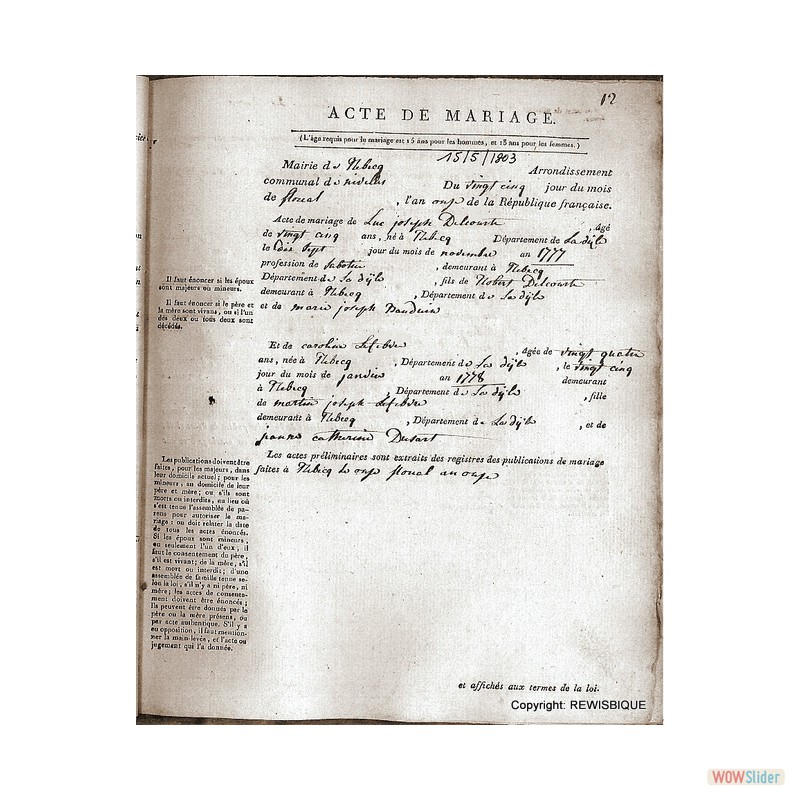 12
ACTE DE MARIAGE.
(L'âge requis pour le mariage est 15 ans pour les hommes, et 13 ans pour les femmes.)
15/5/1803
Mairie de Rebecq Arrondissement
communal de nivelles Du vingt cinq jour du mois
de floreal, l'an onze de la République française.
Acte de mariage de Luc joseph Delcourte, âgé
de vingt cinq ans, né à Rebecq Département de La dyle
le dix sept jour du mois de novembre an 1777
profession de sabotier, demeurant à Rebecq
Département de La dyle, fils de Robert Delcourte
demeurant à Rebecq, Département de La dyle
et de marie joseph
Et de caroline Lefebvre, âgée de vingt quatre
ans, née à Rebecq, Département de La dyle, le vingt cinq
jour du mois de janvier an 1778 demeurant
à Rebecq, Département de La dyle, fille
de martin joseph Lefebvre
demeurant à Rebecq, Département de La dyle, et de
jeanne catherine Dusart
Les actes préliminaires sont extraits des registres des publications de mariage
faites à Rebecq Le onze floreal an onze
et affichés aux termes de la loi.
Il faut énoncer si les époux
sont majeurs ou mineurs.
Il faut énoncer si le père et
la mère sont vivans, ou si l'un
des deux ou tous deux sont
décédés.
Les publications doivent être
faites, pour les majeurs, dans
leur domicile actuel; pour les
mineurs, au domicile de leur
père et mère; ou s'ils sont
morts ou interdits, au lieu où
s'est tenue l'assemblée de pa-
rens pour autoriser le ma-
riage: on doit relater la date
de tous les actes énoncés.
Si les époux sont mineurs,
ou seulement l'un d'eux, il
faut le consentement du père,
s'il est vivant; de la mère, s'il
est mort ou interdit; d'une
assemblée de famille tenue se-
lon la loi, s'il n'y a ni père, ni
mère; les actes de consente-
ment doivent être énoncés;
Ils peuvent être donnés par le
père ou la mère présens, ou
par acte authentique. S'il y a
eu opposition, il faut mention-
ner la main-levée, et l'acte ou
jugement qui l'a donnée.
Copyright: REWISBIQUE
WOWSlider